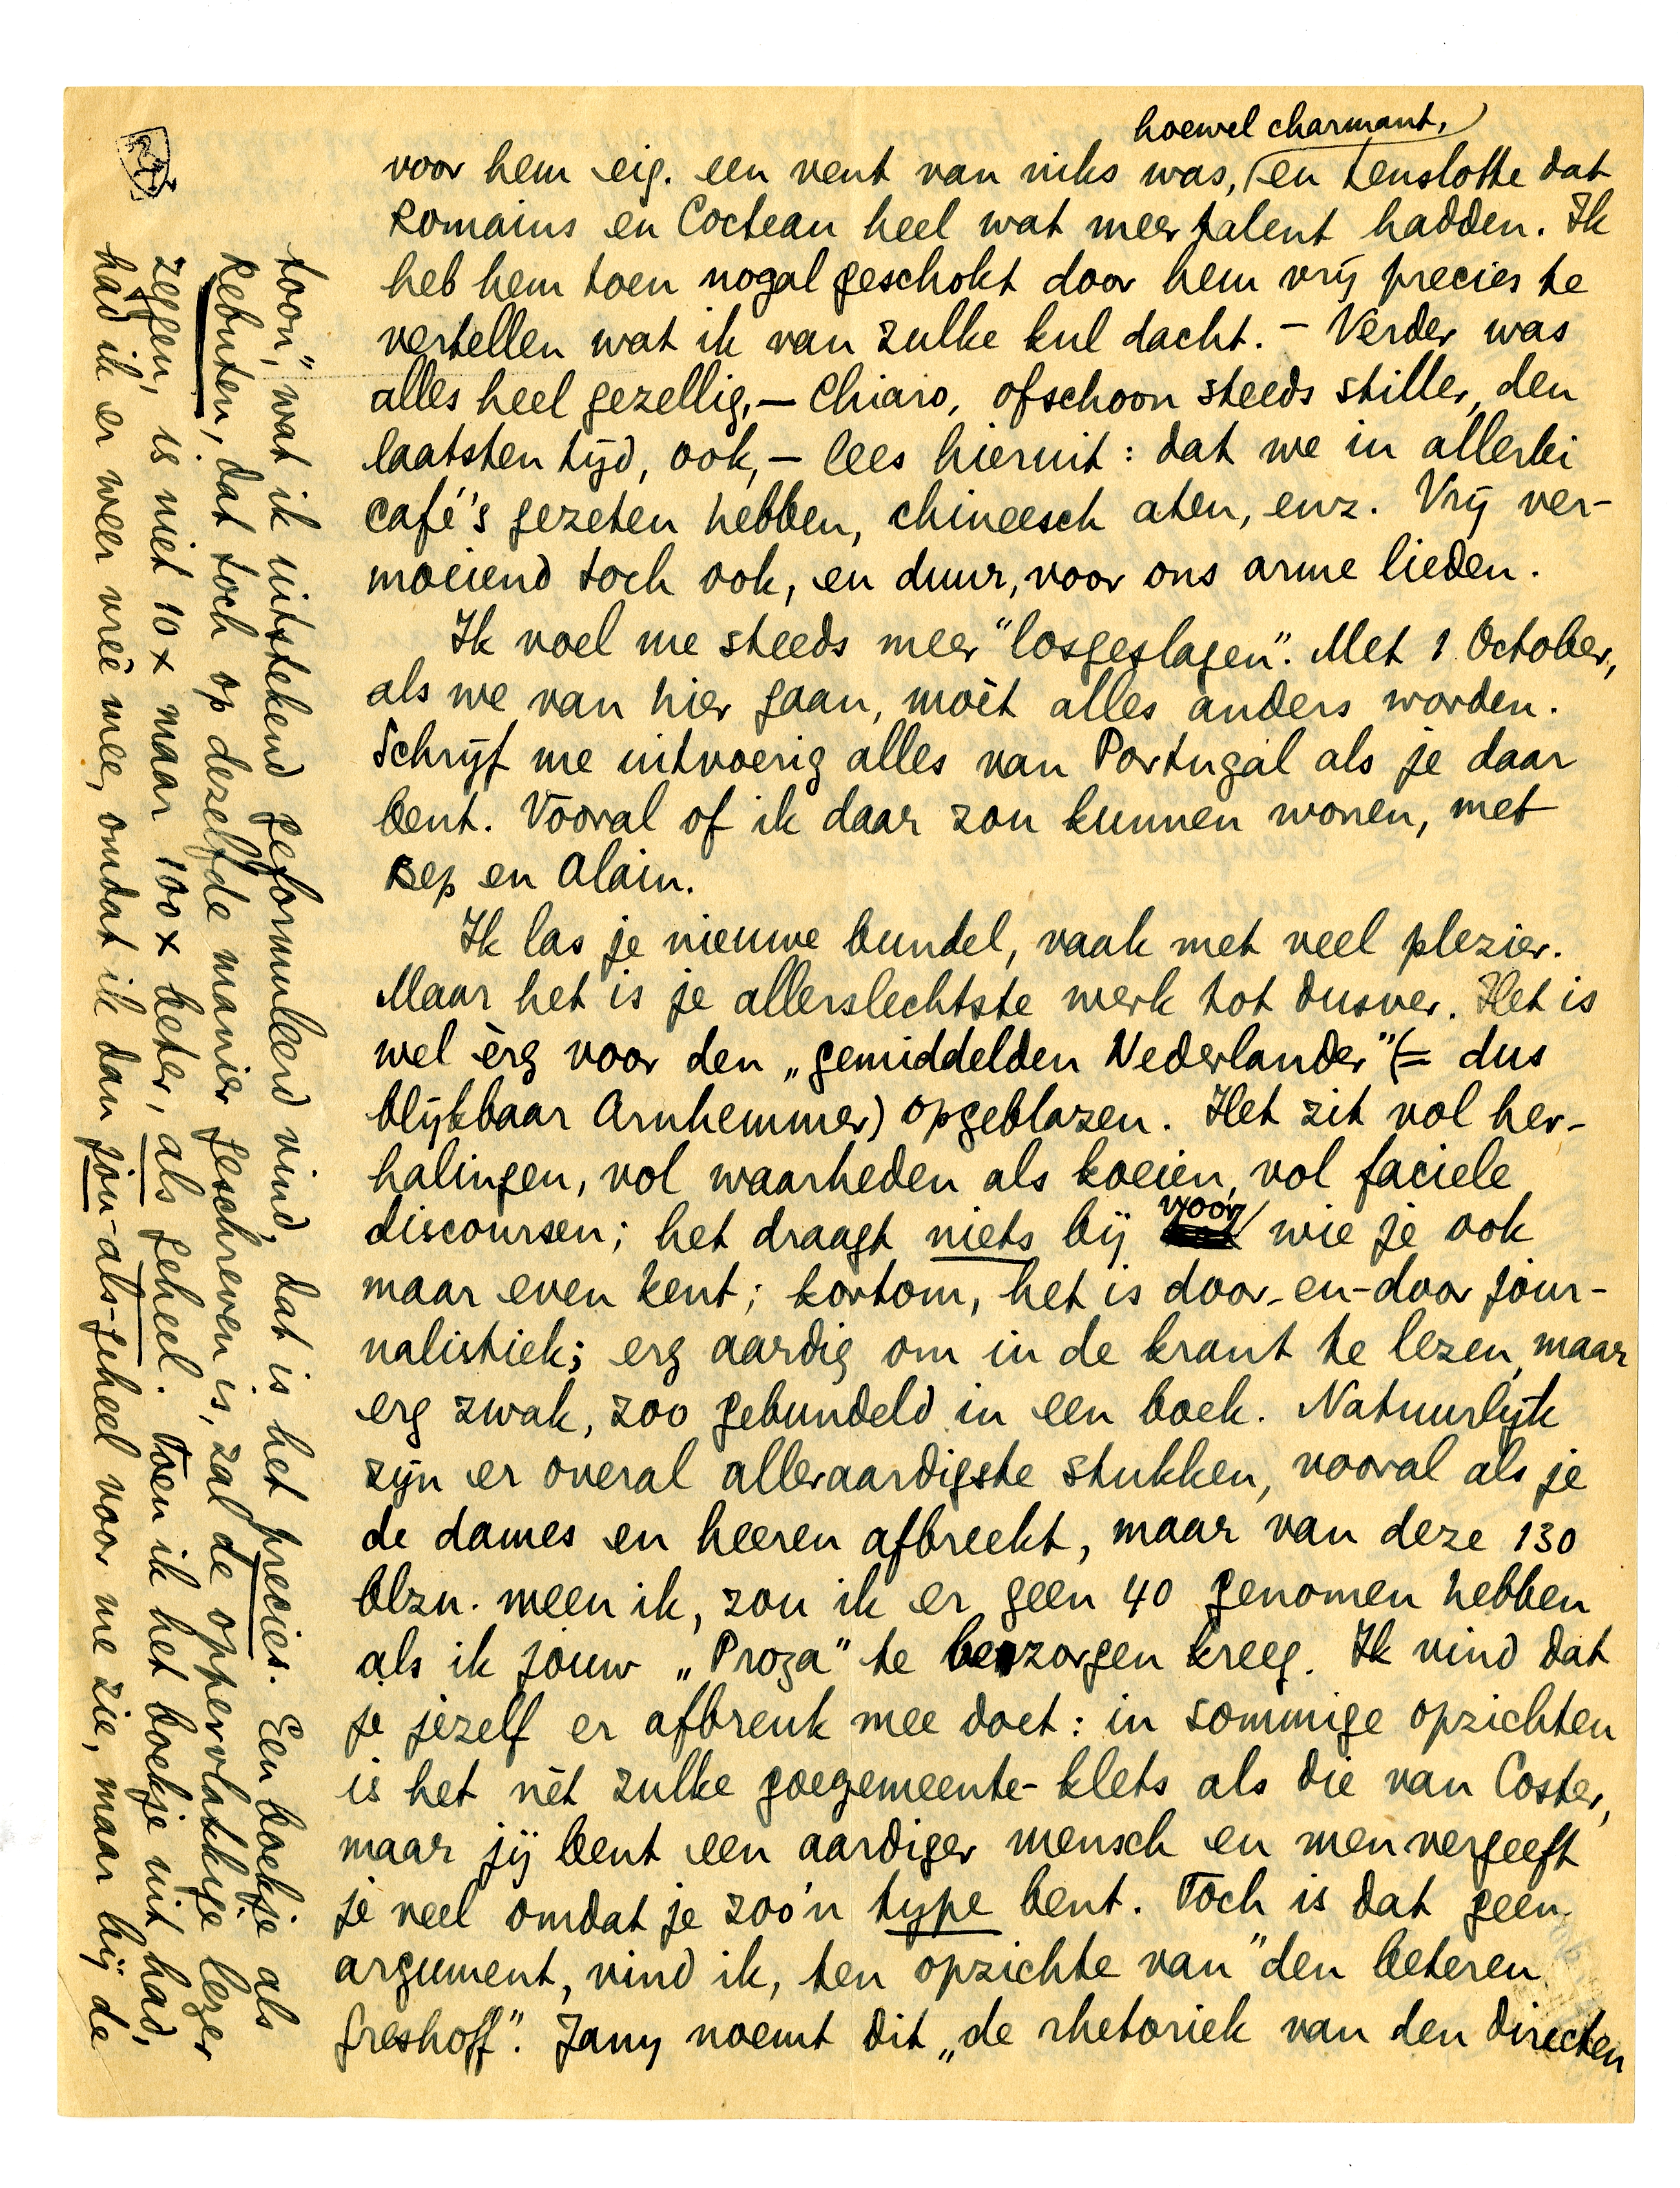 hoewel charmant,
voor hem eig. een vent van niks was, en tenslotte dat
Romains en Cocteau heel wat meer talent hadden. Ik
heb hem toen nogal geschokt door hem vrij precies te
vertellen wat ik van zulke kul dacht. – Verder was
alles heel gezellig, – Chiaro, ofschoon steeds stiller, den
laatsten tijd, ook, – lees hieruit: dat we in allerlei
café's gezeten hebben, chineesch aten, enz. Vrij ver-
moeiend toch ook, en duur, voor ons arme lieden.
Ik voel me steeds meer "losgeslagen". Met 1 October,
als we van hier gaan, moèt alles anders worden.
Schrijf me uitvoerig alles van Portugal als je daar
bent. Vooral of ik daar zou kunnen wonen, met
Bep en Alain.
Ik las je nieuwe bundel, vaak met veel plezier.
Maar het is je allerslechtste werk tot dusver. Het is
wel èrg voor den „gemiddelden Nederlander" (= dus
blijkbaar Arnhemmer) opgeblazen. Het zit vol her-
halingen, vol waarheden als koeien, vol faciele
discoursen; het draagt niets bij voor wie je ook
maar even kent; kortom, het is door-en-door jour-
nalistiek; erg aardig om in de krant te lezen, maar
erg zwak, zoo gebundeld in een boek. Natuurlijk
zijn er overal alleraardigste stukken, vooral als je
de dames en heeren afbreekt, maar van deze 130
blzn. meen ik, zou ik er geen 40 genomen hebben
als ik jouw „Proza" te bezorgen kreeg. Ik vind dat
je jezelf er afbreuk mee doet: in sommige opzichten
is het nèt zulke goegemeente-klets als die van Coster,
maar jij bent een aardiger mensch en men vergeeft
je veel omdat je zoo'n type bent. Toch is dat geen
argument, vind ik, ten opzichte van "den beteren
Greshoff". Jany noemt dit „de rhetoriek van den directen
toon", wat ik uitstekend geformuleerd vind, dat is het precies. Een boekje als
Rebuten, dat toch op dezelfde manier geschreven is, zal de oppervlakkige lezer
zeggen, is niet 10 x maar 100 x beter, als geheel. Toen ik het boekje uit had,
had ik er weer vree mee, omdat ik dan jou-als-geheel voor me zie, maar bij de